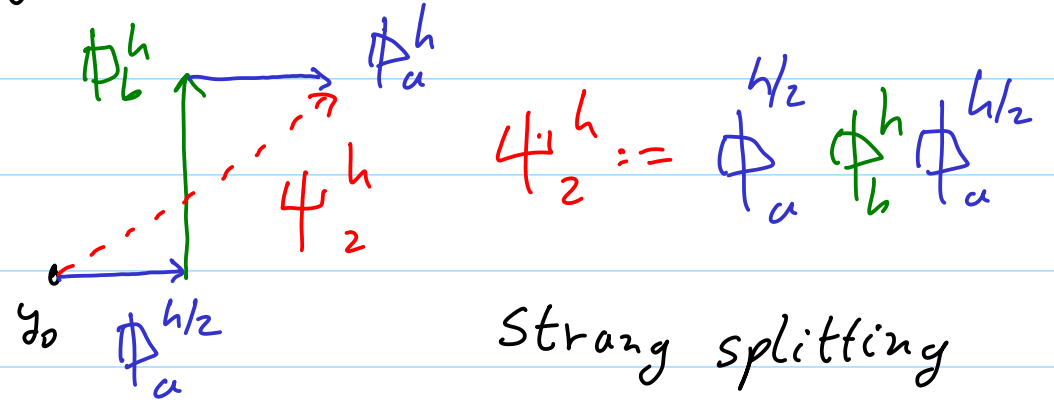 Φ_b^h Φ_a^h
Ψ_2^h := Φ_a^{h/2} Φ_b^h Φ_a^{h/2}
Ψ_2^h
y_0 Φ_a^{h/2}
Strang splitting